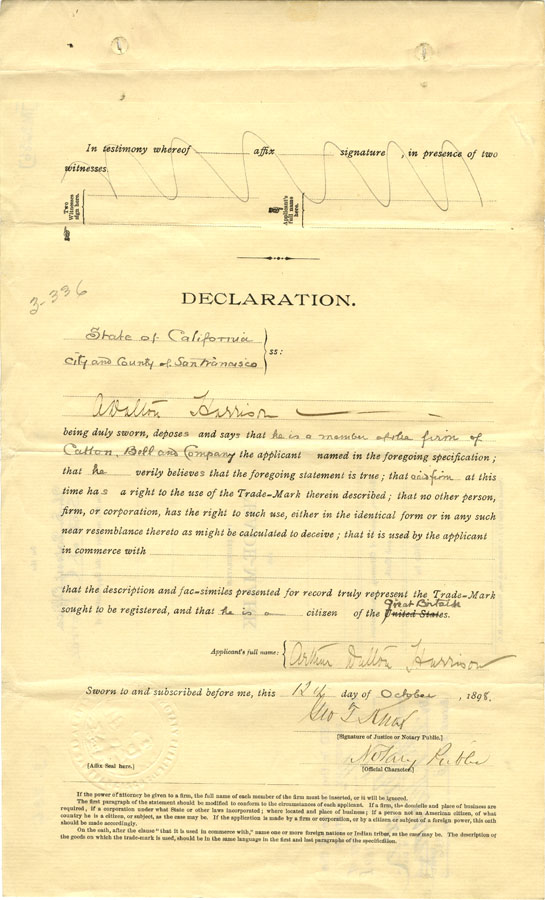 In testimony whereof affix signature , in presence of two
witnesses.
Two
Witnesses
sign here.
Applicant's
full name
here.
3-336
DECLARATION.
State of California
City and County of San Francisco
ss:
A Dalton Harrison
being duly sworn, deposes and says that he is a member of the firm of
Catton, Bell and Company the applicant named in the foregoing specification;
that he verily believes that the foregoing statement is true; that said firm at this
time has a right to the use of the Trade-Mark therein described; that no other person,
firm, or corporation, has the right to such use, either in the identical form or in any such
near resemblance thereto as might be calculated to deceive; that it is used by the applicant
in commerce with
that the description and fac-similes presented for record truly represent the Trade-Mark
Great Britain
sought to be registered, and that he is a citizen of the United States.
Applicant's full name:
Arthur Dalton Harrison
Sworn to and subscribed before me, this 12th day of October , 1898.
Geo T. Knox
[Signature of Justice or Notary Public.]
Notary Public
[Affix Seal here.]
[Official Character.]
If the power of attorney be given to a firm, the full name of each member of the firm must be inserted, or it will be ignored.
The first paragraph of the statement should be modified to conform to the circumstances of each applicant. If a firm, the domicile and place of business are
required, if a corporation under what State or other laws incorporated; where located and place of business; if a person not an American citizen, of what
country he is a citizen, or subject, as the case may be. If the application is made by a firm or corporation, or by a citizen or subject of a foreign power, this oath
should be made accordingly.
On the oath, after the clause "that it is used in commerce with," name one or more foreign nations or Indian tribes, as the case may be. The description of
the goods on which the trade-mark is used, should be in the same language in the first and last paragraphs of the specification.